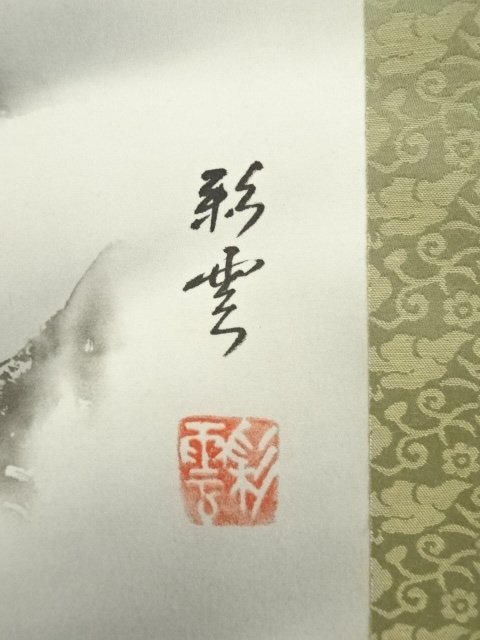 彩雲
彩雲